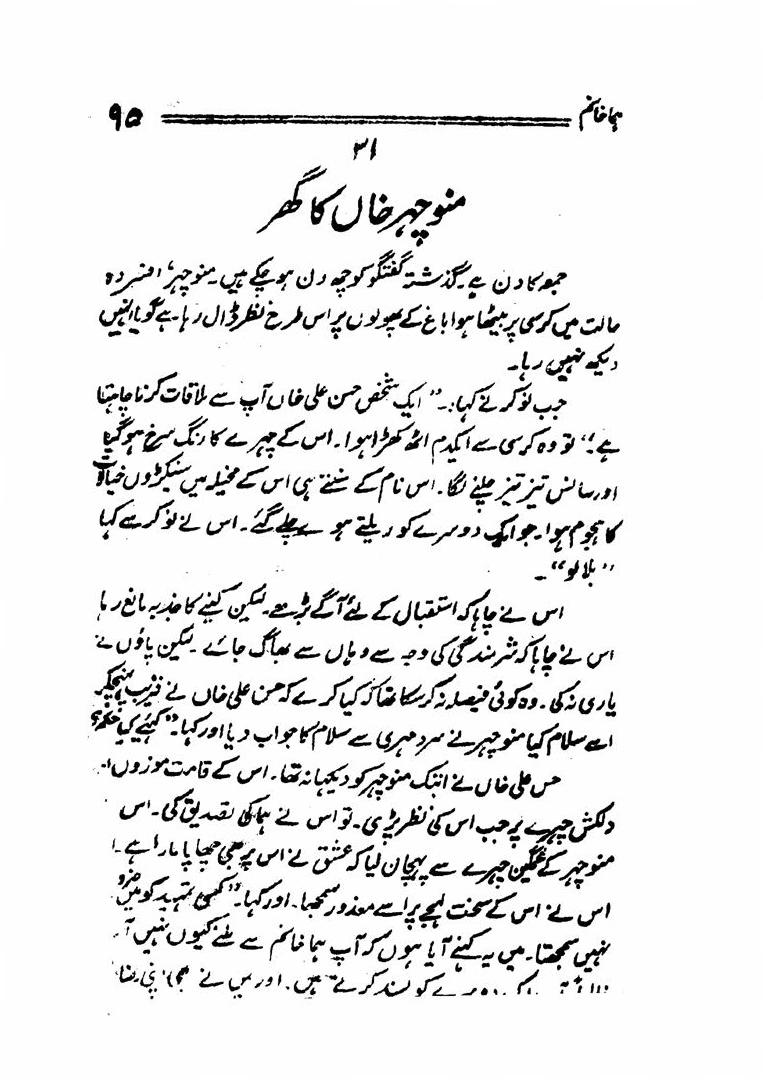 ہما خانم ۹۵
۳۱
منوچہر خاں کا گھر
جمعہ کا دن ہے۔ گذشتہ گفتگو کو چھ دن ہو چکے ہیں۔ منوچہر، افسردہ
حالت میں کرسی پر بیٹھا ہوا باغ کے پھولوں پر اس طرح نظر ڈال رہا ہے گویا انہیں
دیکھ نہیں رہا۔
جب نوکر نے کہا:۔ "ایک شخص حسن علی خاں آپ سے ملاقات کرنا چاہتا
ہے۔" تو وہ کرسی سے ایکدم اٹھ کھڑا ہوا۔ اس کے چہرے کا رنگ سرخ ہو گیا
اور سانس تیز تیز چلنے لگا۔ اس نام کے سنتے ہی اس کے مخیلہ میں سینکڑوں خیالات
کا ہجوم ہوا۔ جو ایک دوسرے کو ریلتے ہوے چلے گئے۔ اس نے نوکر سے کہا
"بلا لو"۔
اس نے چاہا کہ استقبال کے لئے آگے بڑھے۔ لیکن کینے کا جذبہ مانع رہا
اس نے چاہا کہ شرمندگی کی وجہ سے وہاں سے بھاگ جائے۔ لیکن پاؤں نے
یاری نہ کی۔ وہ کوئی فیصلہ نہ کر سکا تھا کہ کیا کرے کہ حسن علی خاں نے قریب پہنچکر
اسے سلام کیا منوچہر نے سرد مہری سے سلام کا جواب دیا اور کہا۔ "کہئے کیا حکم ہے؟
حسن علی خاں نے ابتک منوچہر کو دیکھا نہ تھا۔ اس کے قامت موزوں اور
دلکش چہرے پر جب اس کی نظر پڑی۔ تو اس نے ہما کی تصدیق کی۔ اس
منوچہر کے غمگین چہرے سے پہچان لیا کہ عشق نے اس پر بھی چھاپا مارا ہے۔
اس نے اس کے سخت لہجے پر اسے معذور سمجھا۔ اور کہا۔ "کسی تمہید کو میں ضرو
نہیں سمجھتا۔ میں یہ کہنے آیا ہوں کہ آپ ہما خانم سے ملنے کیوں نہیں آ
دوسرے کو پسند کرتے ہیں۔ اور میں نے بھی اپنی رضا